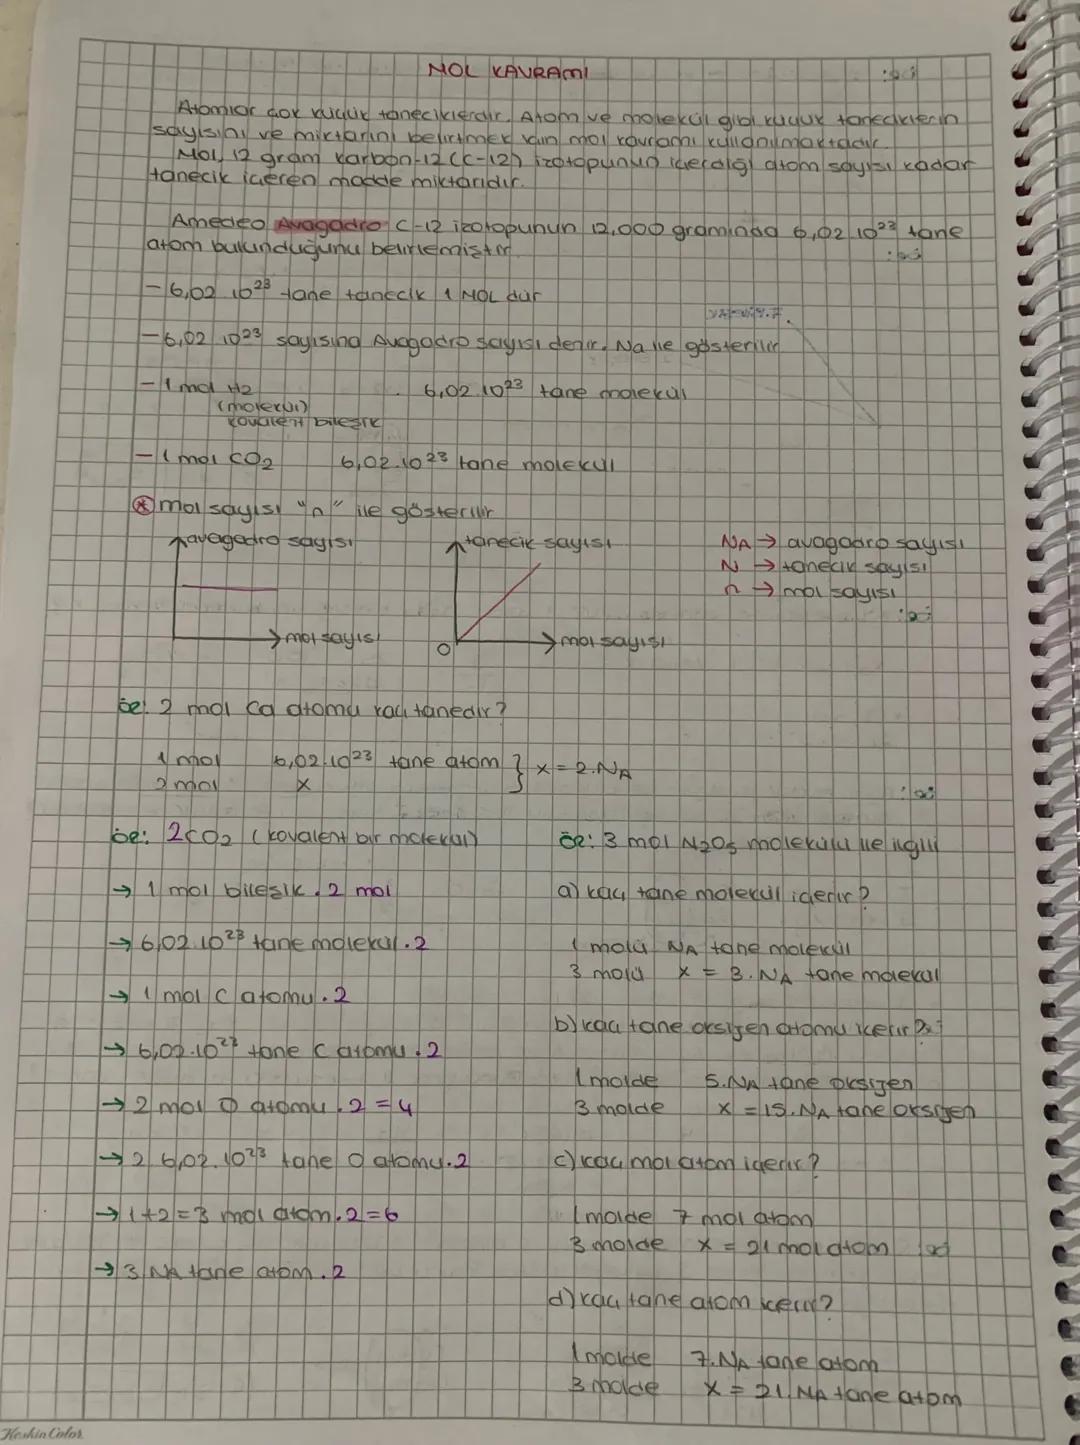 MOL KAVRAMI
Atomlar çok küçük taneciklerdir. Atom ve molekül gibi küçük taneciklerin
sayısını ve miktarını belirtmek için mol kavramı kullanılmaktadır.
Mol, 12 gram karbon-12 (C-12) izotopunun içerdiği atom sayısı kadar
tanecik içeren madde miktarıdır.
Amedeo Avagadro C-12 izotopunun 12,000 gramında 6,02.10²³ tane
atom bulunduğunu belirlemiştir.
- 6,02.10²³ tane tanecik 1 MOL dür
- 6,02.10²³ sayısına Avagadro sayısı denir. Na ile gösterilir
- 1 mol H₂ 6,02.10²³ tane molekül
(molekül)
kovalent bileşik
- 1 mol CO₂ 6,02.10²³ tane molekül
* mol sayısı "n" ile gösterilir
avagadro sayısı
tanecik sayısı
NA → avagadro sayısı
N → tanecik sayısı
n → mol sayısı
mol sayısı
0
mol sayısı
ör: 2 mol Ca atomu kaç tanedir?
1 mol 6,02.10²³ tane atom } x = 2.NA
2 mol x
ör: 2CO₂ (kovalent bir molekül)
→ 1 mol bileşik . 2 mol
→ 6,02.10²³ tane molekül . 2
→ 1 mol C atomu . 2
→ 6,02.10²³ tane C atomu . 2
→ 2 mol O atomu . 2 = 4
→ 2 6,02.10²³ tane O atomu . 2
→ 1+2=3 mol atom . 2 = 6
→ 3 NA tane atom . 2
ör: 3 mol N₂O₅ molekülü ile ilgili
a) kaç tane molekül içerir?
1 molü NA tane molekül
3 molü x = 3.NA tane molekül
b) kaç tane oksijen atomu içerir?
1 molde 5.NA tane oksijen
3 molde x = 15.NA tane oksijen
c) kaç mol atom içerir?
1 molde 7 mol atom
3 molde x = 21 mol atom
d) kaç tane atom içerir?
1 molde 7.NA tane atom
3 molde x = 21.NA tane atom
Keskin Color